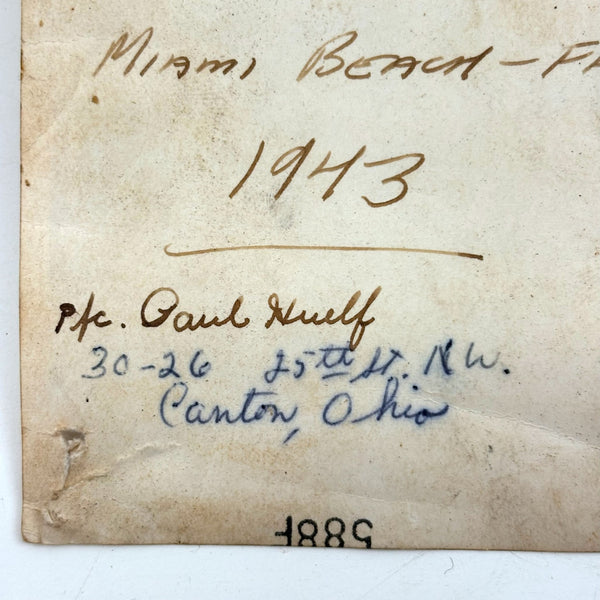 MIAMI BEACH -
1943
Pfc. Paul Huelf
30-26 25th St. N.W.
Canton, Ohio